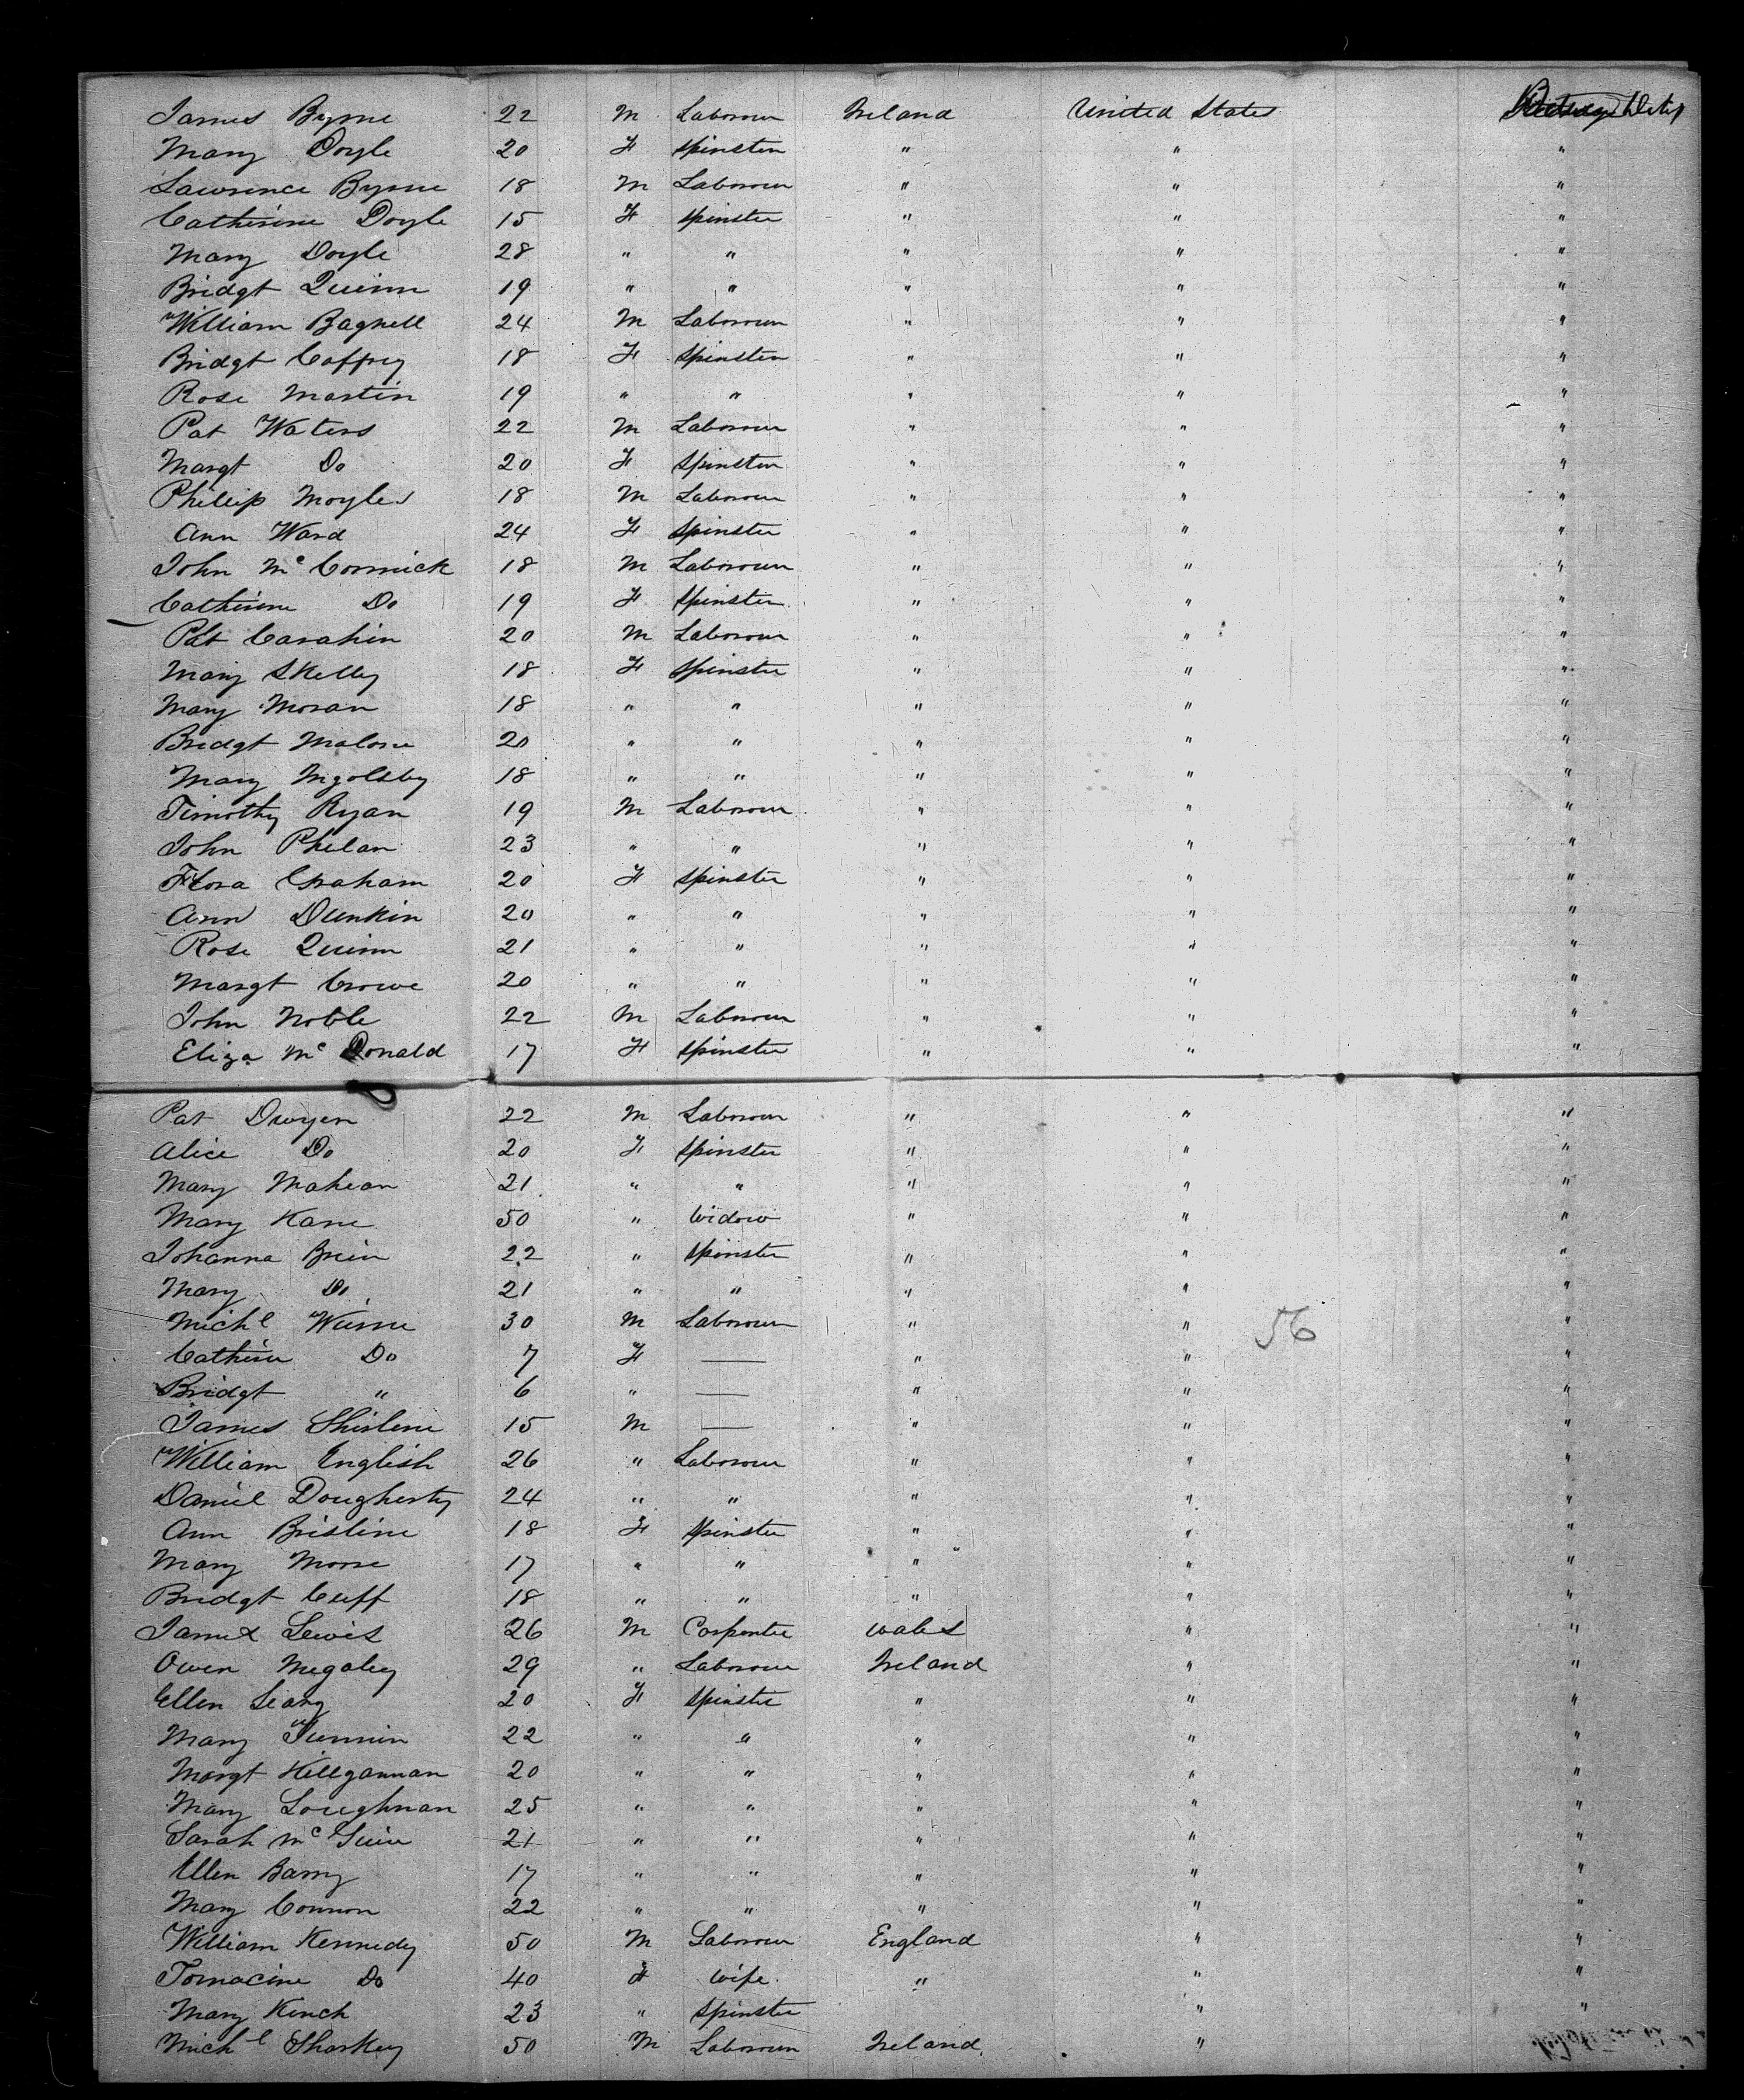 James Byrne 22 M Labourer Ireland United States
Mary Doyle 20 F Spinster " " "
Lawrence Byrne 18 M Labourer " " "
Catherine Doyle 15 F Spinster " " "
Mary Doyle 28 " " " " "
Bridgt Quinn 19 " " " " "
William Bagnell 24 M Labourer " " "
Bridgt Caffrey 18 F Spinster " " "
Rose Martin 19 " " " " "
Pat Waters 22 M Labourer " " "
Margt Do 20 F Spinster " " "
Phillip Moyles 18 M Labourer " " "
Ann Ward 24 F Spinster " " "
John McCormick 18 M Labourer " " "
Catherine Do 19 F Spinster " " "
Pat Carahin 20 M Labourer " " "
Mary Skelly 18 F Spinster " " "
Mary Moran 18 " " " " "
Bridgt Malone 20 " " " " "
Mary Ingolsby 18 " " " " "
Timothy Ryan 19 M Labourer " " "
John Phelan 23 " " " " "
Flora Graham 20 F Spinster " " "
Ann Dunkin 20 " " " " "
Rose Quinn 21 " " " " "
Margt Crowe 20 " " " " "
John Noble 22 M Labourer " " "
Eliza McDonald 17 F Spinster " " "
Pat Dwyer 22 M Labourer " " "
Alice Do 20 F Spinster " " "
Mary Mahean 21 " " " " "
Mary Kane 50 " Widow " " "
Johanna Brein 22 " Spinster " " "
Mary Do 21 " " " " "
Michl 30 M Labourer " " 56 "
Catherine Do 7 F — " " "
Bridgt " 6 " — " " "
James 15 M — " " "
William English 26 " Labourer " " "
Daniel Dougherty 24 " " " " "
Ann Brisline 18 F Spinster " " "
Mary Moore 17 " " " " "
Bridgt Cuff 18 " " " " "
James Lewis 26 M Carpenter Wales " "
Owen Megaley 29 " Labourer Ireland " "
Ellen Leary 20 F Spinster " " "
Mary 22 " " " " "
Margt Killgannan 20 " " " " "
Mary Loughnan 25 " " " " "
Sarah Mc 21 " " " " "
Ellen Barry 17 " " " " "
Mary Connon 22 " " " " "
William Kennedy 50 M Labourer England " "
Tomacine Do 40 F Wife " " "
Mary Kinch 23 " Spinster " "
Michl Sharkey 50 M Labourer Ireland "